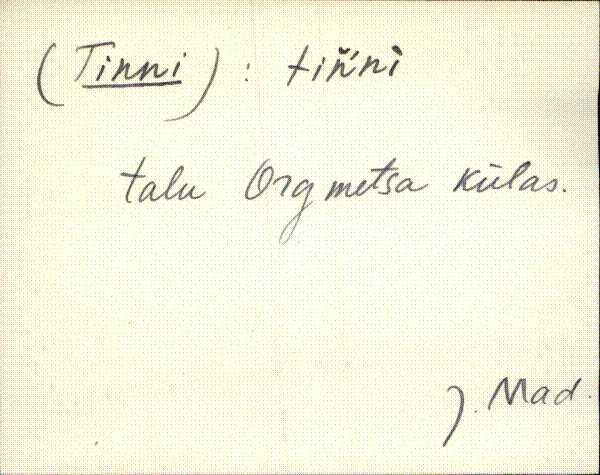 (Tinni) : tiňńi
talu Orgmetsa külas.
J. Mad.